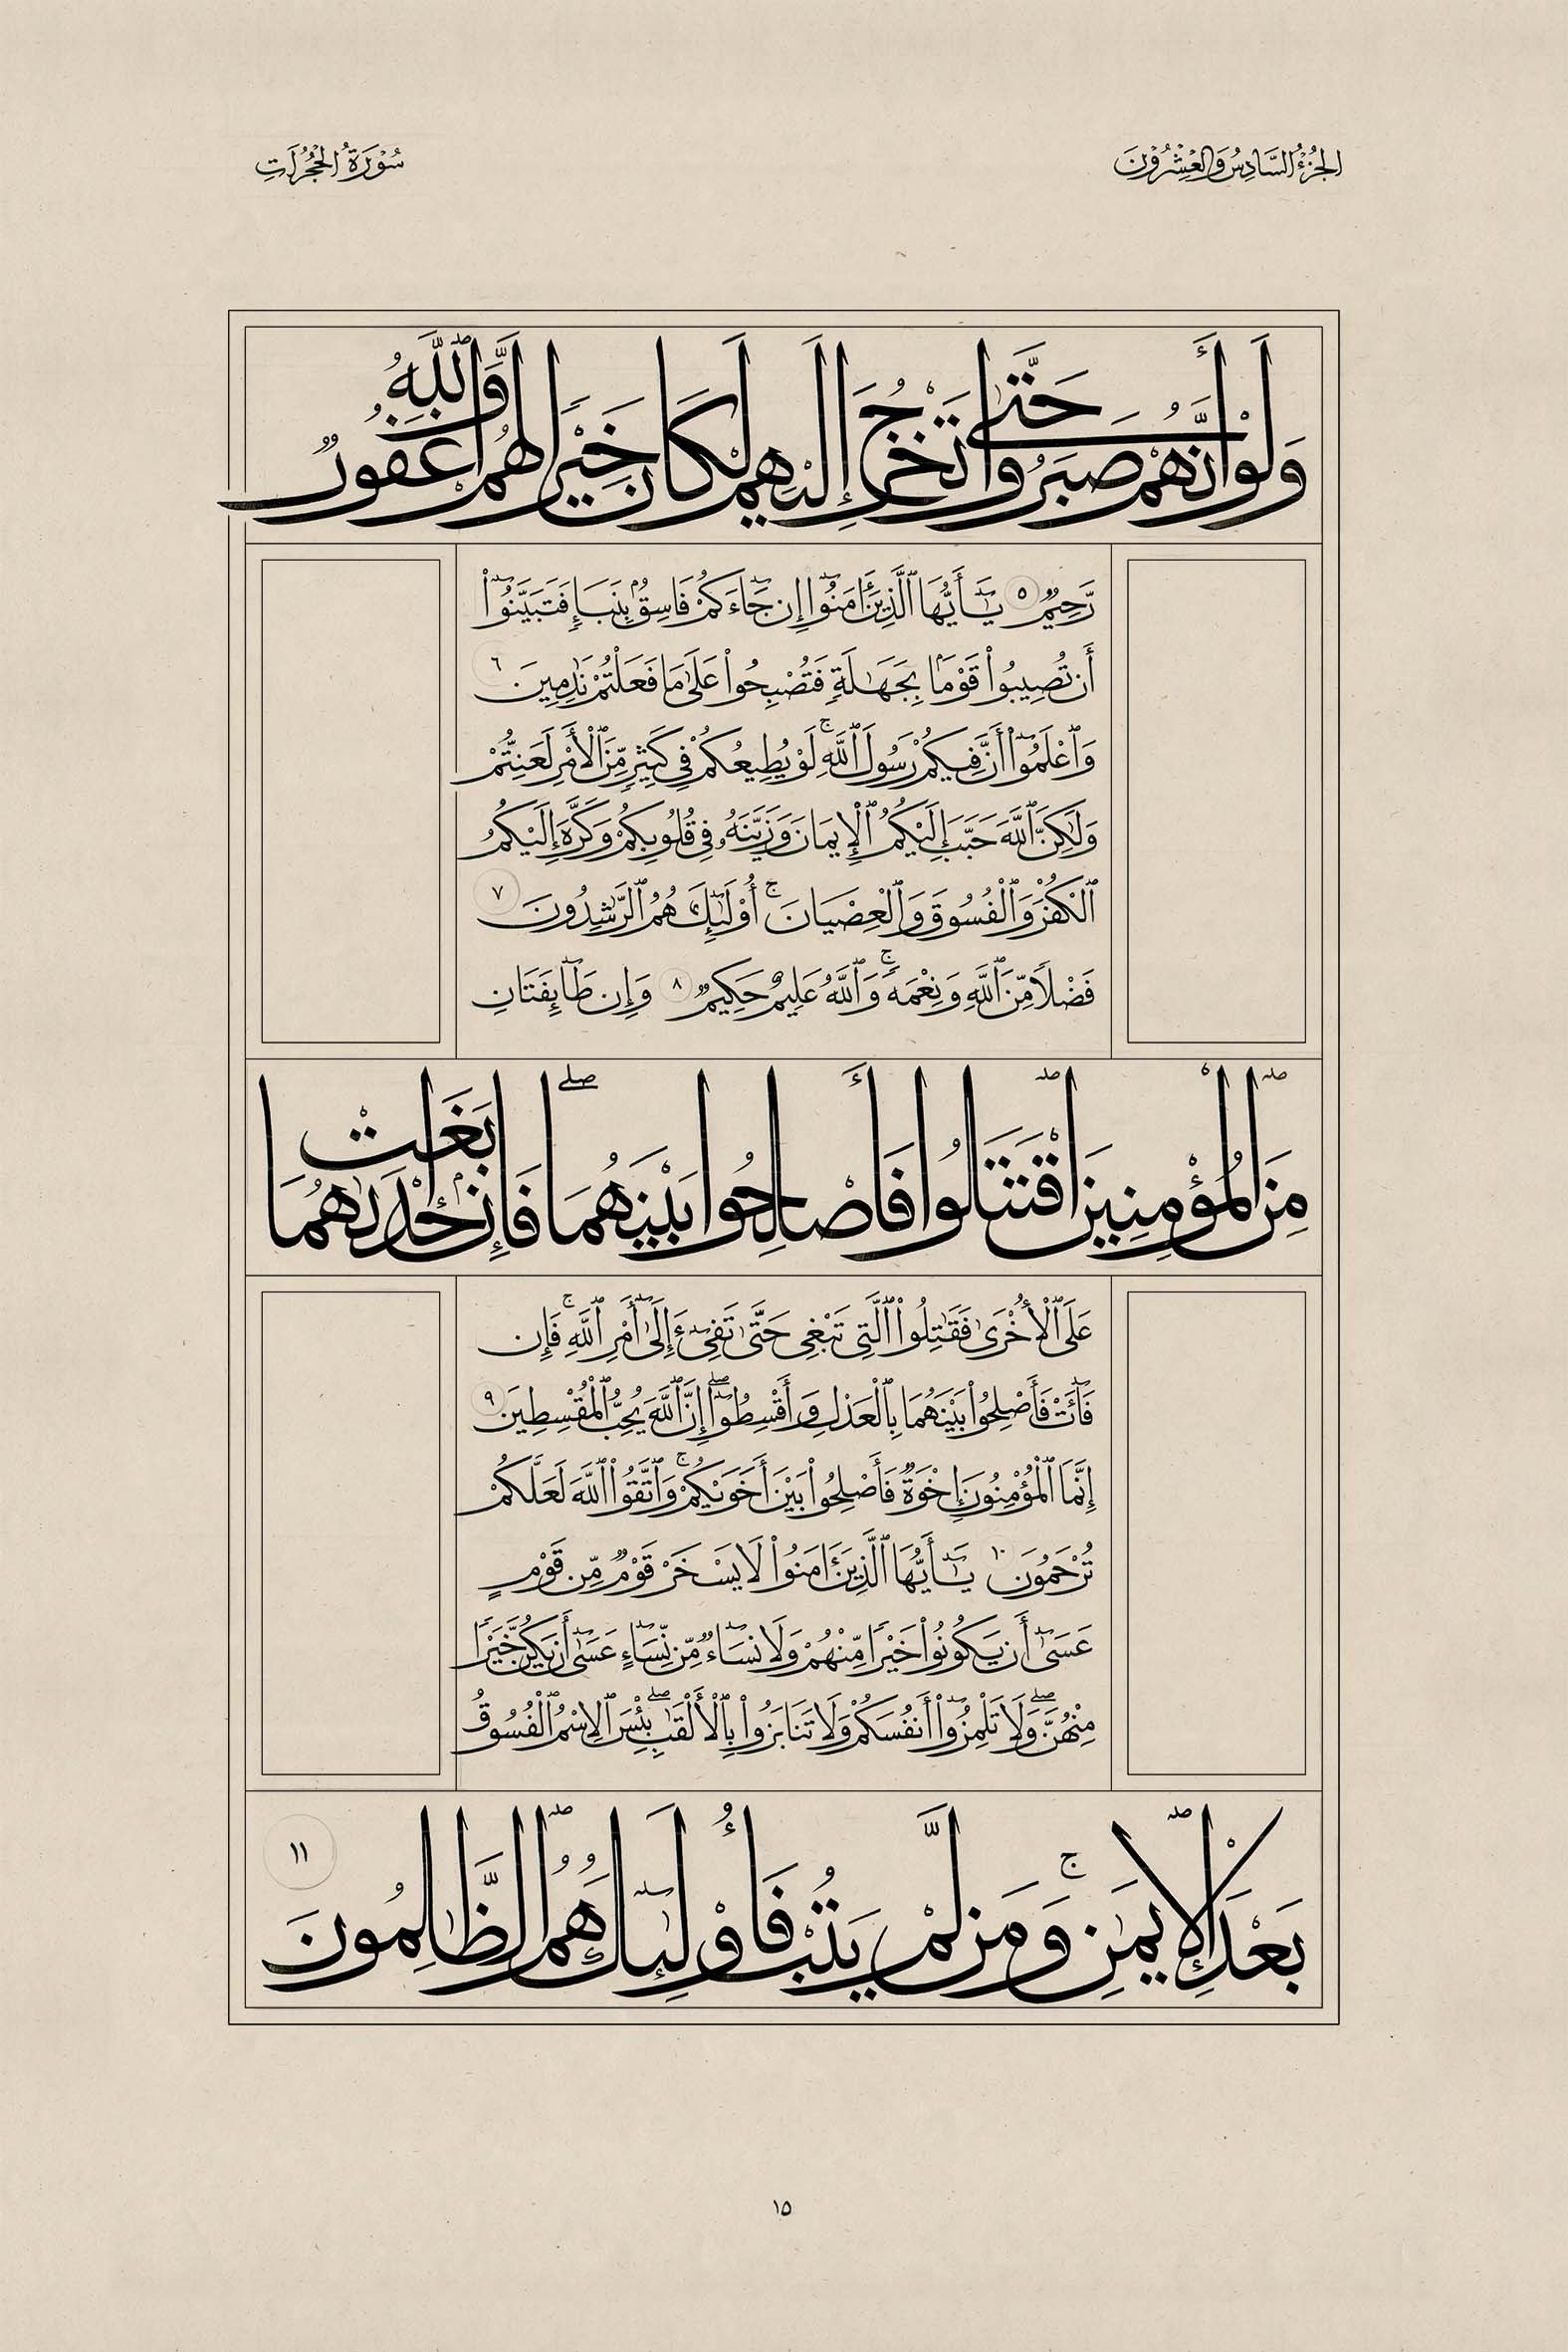 الجُزْءُ السَّادِسُ وَالعِشْرُونَ
سُورَةُ الحُجُرَاتِ
وَلَوْ أَنَّهُمْ صَبَرُوا حَتَّىٰ تَخْرُجَ إِلَيْهِمْ لَكَانَ خَيْرًا لَهُمْ وَٱللَّهُ غَفُورٌ
رَّحِيمٌ ٥ يَـٰٓأَيُّهَا ٱلَّذِينَ ءَامَنُوٓا۟ إِن جَآءَكُمْ فَاسِقٌۢ بِنَبَإٍ فَتَبَيَّنُوٓا۟
أَن تُصِيبُوا۟ قَوْمًۢا بِجَهَـٰلَةٍ فَتُصْبِحُوا۟ عَلَىٰ مَا فَعَلْتُمْ نَـٰدِمِينَ ٦
وَٱعْلَمُوٓا۟ أَنَّ فِيكُمْ رَسُولَ ٱللَّهِ ۚ لَوْ يُطِيعُكُمْ فِى كَثِيرٍ مِّنَ ٱلْأَمْرِ لَعَنِتُّمْ
وَلَـٰكِنَّ ٱللَّهَ حَبَّبَ إِلَيْكُمُ ٱلْإِيمَانَ وَزَيَّنَهُۥ فِى قُلُوبِكُمْ وَكَرَّهَ إِلَيْكُمُ
ٱلْكُفْرَ وَٱلْفُسُوقَ وَٱلْعِصْيَانَ ۚ أُو۟لَـٰٓئِكَ هُمُ ٱلرَّٰشِدُونَ ٧
فَضْلًا مِّنَ ٱللَّهِ وَنِعْمَةً ۚ وَٱللَّهُ عَلِيمٌ حَكِيمٌ ٨ وَإِن طَآئِفَتَانِ
مِنَ ٱلْمُؤْمِنِينَ ٱقْتَتَلُوا فَأَصْلِحُوا بَيْنَهُمَا ۖ فَإِنۢ بَغَتْ إِحْدَىٰهُمَا
عَلَى ٱلْأُخْرَىٰ فَقَـٰتِلُوا۟ ٱلَّتِى تَبْغِى حَتَّىٰ تَفِىٓءَ إِلَىٰٓ أَمْرِ ٱللَّهِ ۚ فَإِن
فَآءَتْ فَأَصْلِحُوا۟ بَيْنَهُمَا بِٱلْعَدْلِ وَأَقْسِطُوٓا۟ ۖ إِنَّ ٱللَّهَ يُحِبُّ ٱلْمُقْسِطِينَ ٩
إِنَّمَا ٱلْمُؤْمِنُونَ إِخْوَةٌ فَأَصْلِحُوا۟ بَيْنَ أَخَوَيْكُمْ ۚ وَٱتَّقُوا۟ ٱللَّهَ لَعَلَّكُمْ
تُرْحَمُونَ ١٠ يَـٰٓأَيُّهَا ٱلَّذِينَ ءَامَنُوا۟ لَا يَسْخَرْ قَوْمٌ مِّن قَوْمٍ
عَسَىٰٓ أَن يَكُونُوا۟ خَيْرًا مِّنْهُمْ وَلَا نِسَآءٌ مِّن نِّسَآءٍ عَسَىٰٓ أَن يَكُنَّ خَيْرًا
مِّنْهُنَّ ۖ وَلَا تَلْمِزُوٓا۟ أَنفُسَكُمْ وَلَا تَنَابَزُوا۟ بِٱلْأَلْقَـٰبِ ۖ بِئْسَ ٱلِٱسْمُ ٱلْفُسُوقُ
بَعْدَ ٱلْإِيمَـٰنِ ۚ وَمَن لَّمْ يَتُبْ فَأُو۟لَـٰٓئِكَ هُمُ ٱلظَّـٰلِمُونَ ١١
١٥